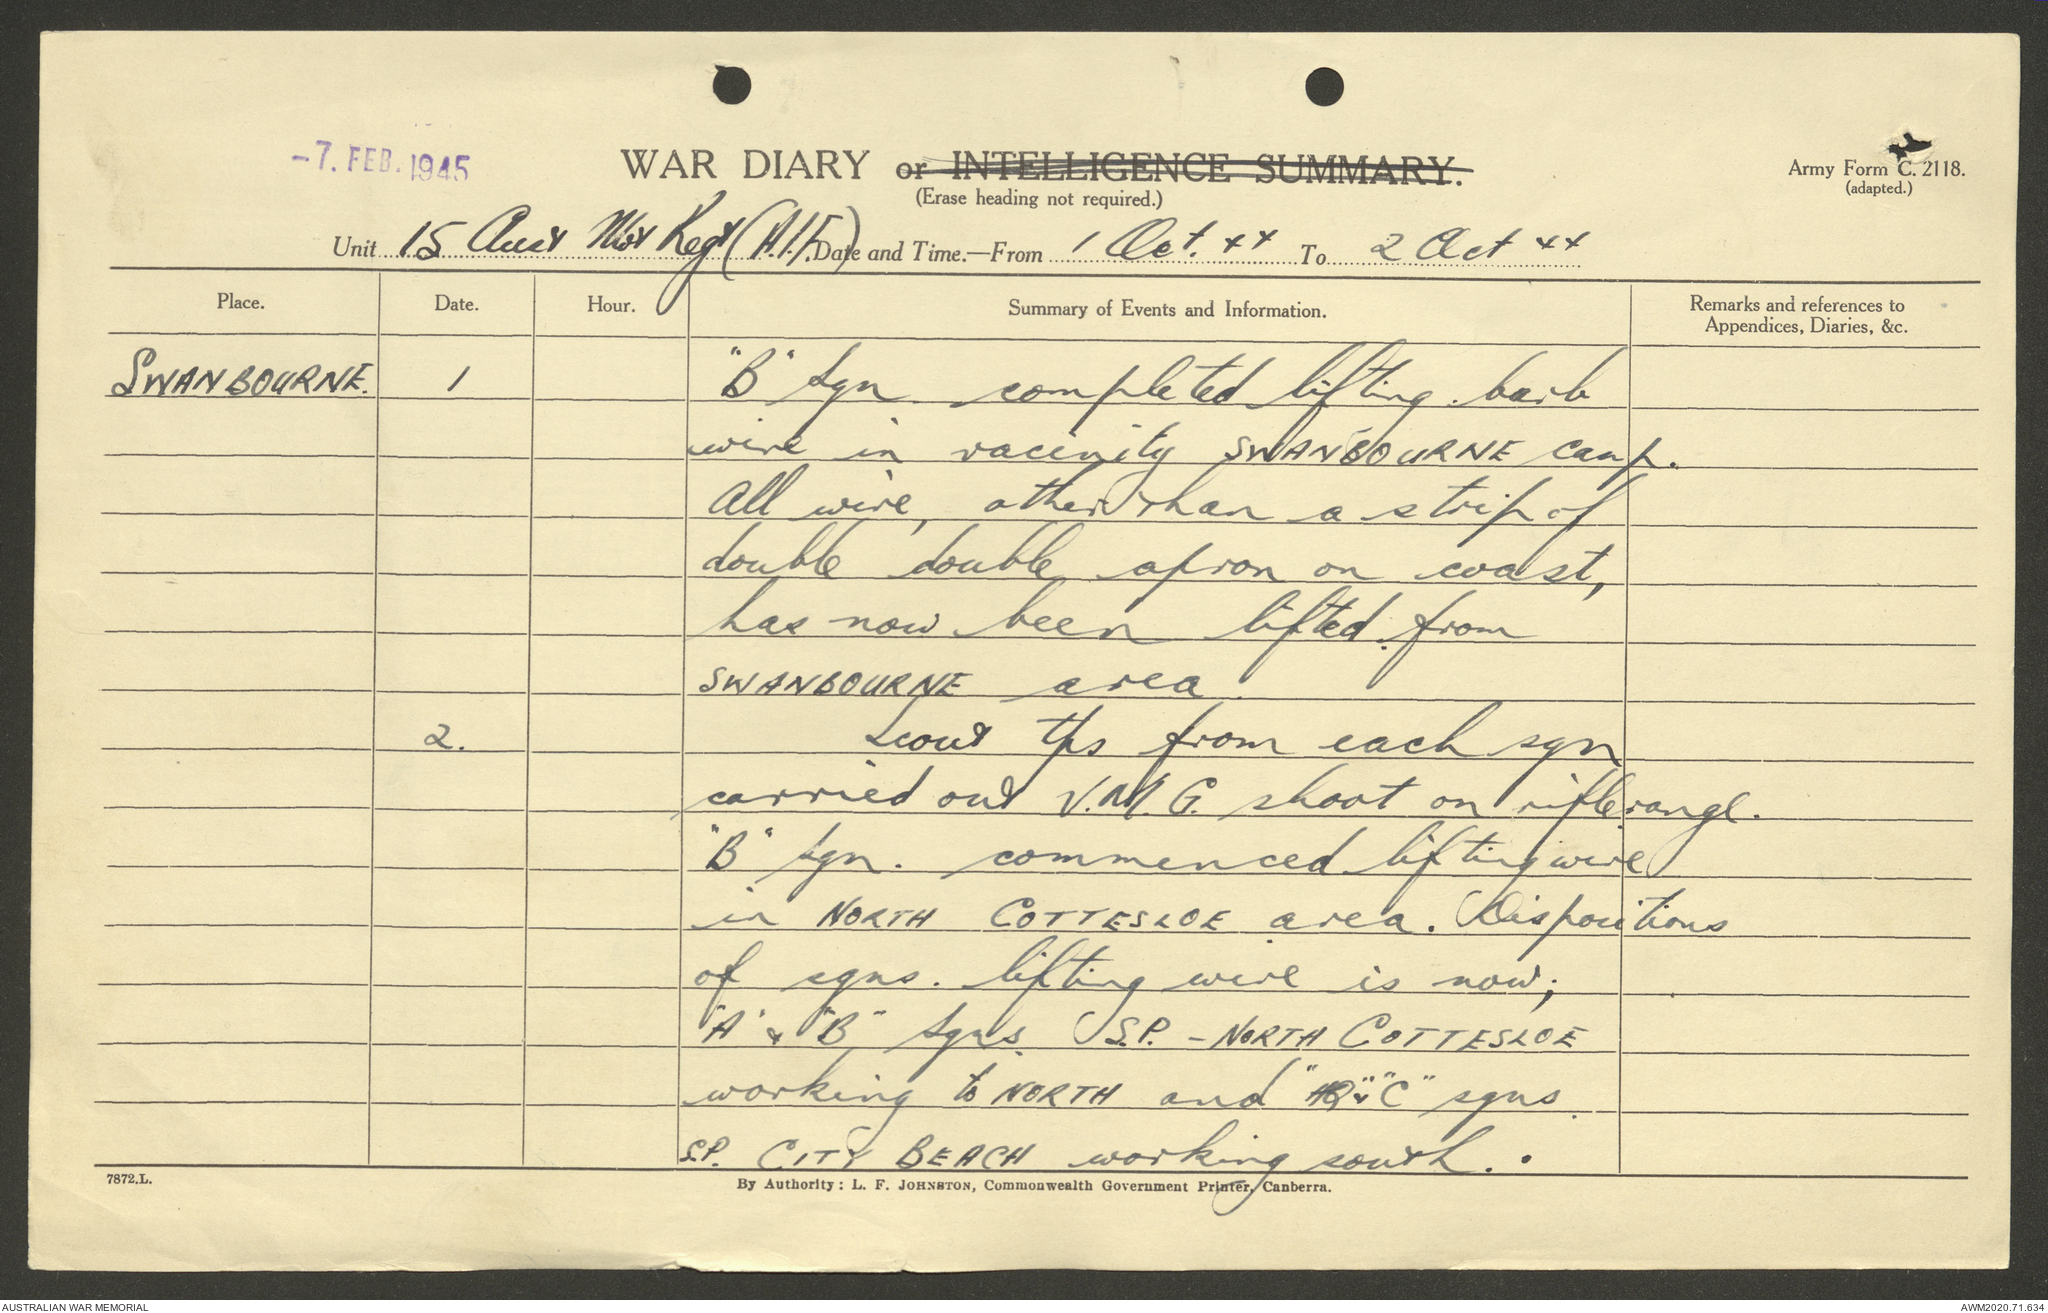 -7. FEB. 1945
WAR DIARY or INTELLIGENCE SUMMARY.
(Erase heading not required.)
Army Form C. 2118.
(adapted.)
Unit 15 Aust Mot Regt (A.I.F.) Date and Time.—From 1 Oct. 44 To 2 Oct 44
Place. Date. Hour. Summary of Events and Information. Remarks and references to
Appendices, Diaries, &c.
SWANBOURNE. 1 "B" Sqn completed lifting barb
wire in vacinity SWANBOURNE camp.
All wire, other than a strip of
double double apron on coast,
has now been lifted from
SWANBOURNE area.
2. Scout tps from each sqn
carried out V.M.G. shoot on rifle range.
"B" Sqn. commenced lifting wire
in NORTH COTTESLOE area. Dispositions
of sqns. lifting wire is now;
"A" & "B" Sqns. S.P. - NORTH COTTESLOE
working to NORTH and "HQ" & "C" sqns.
S.P. CITY BEACH working south.
7872.L.
By Authority: L. F. JOHNSTON, Commonwealth Government Printer, Canberra.
AUSTRALIAN WAR MEMORIAL
AWM2020.71.634